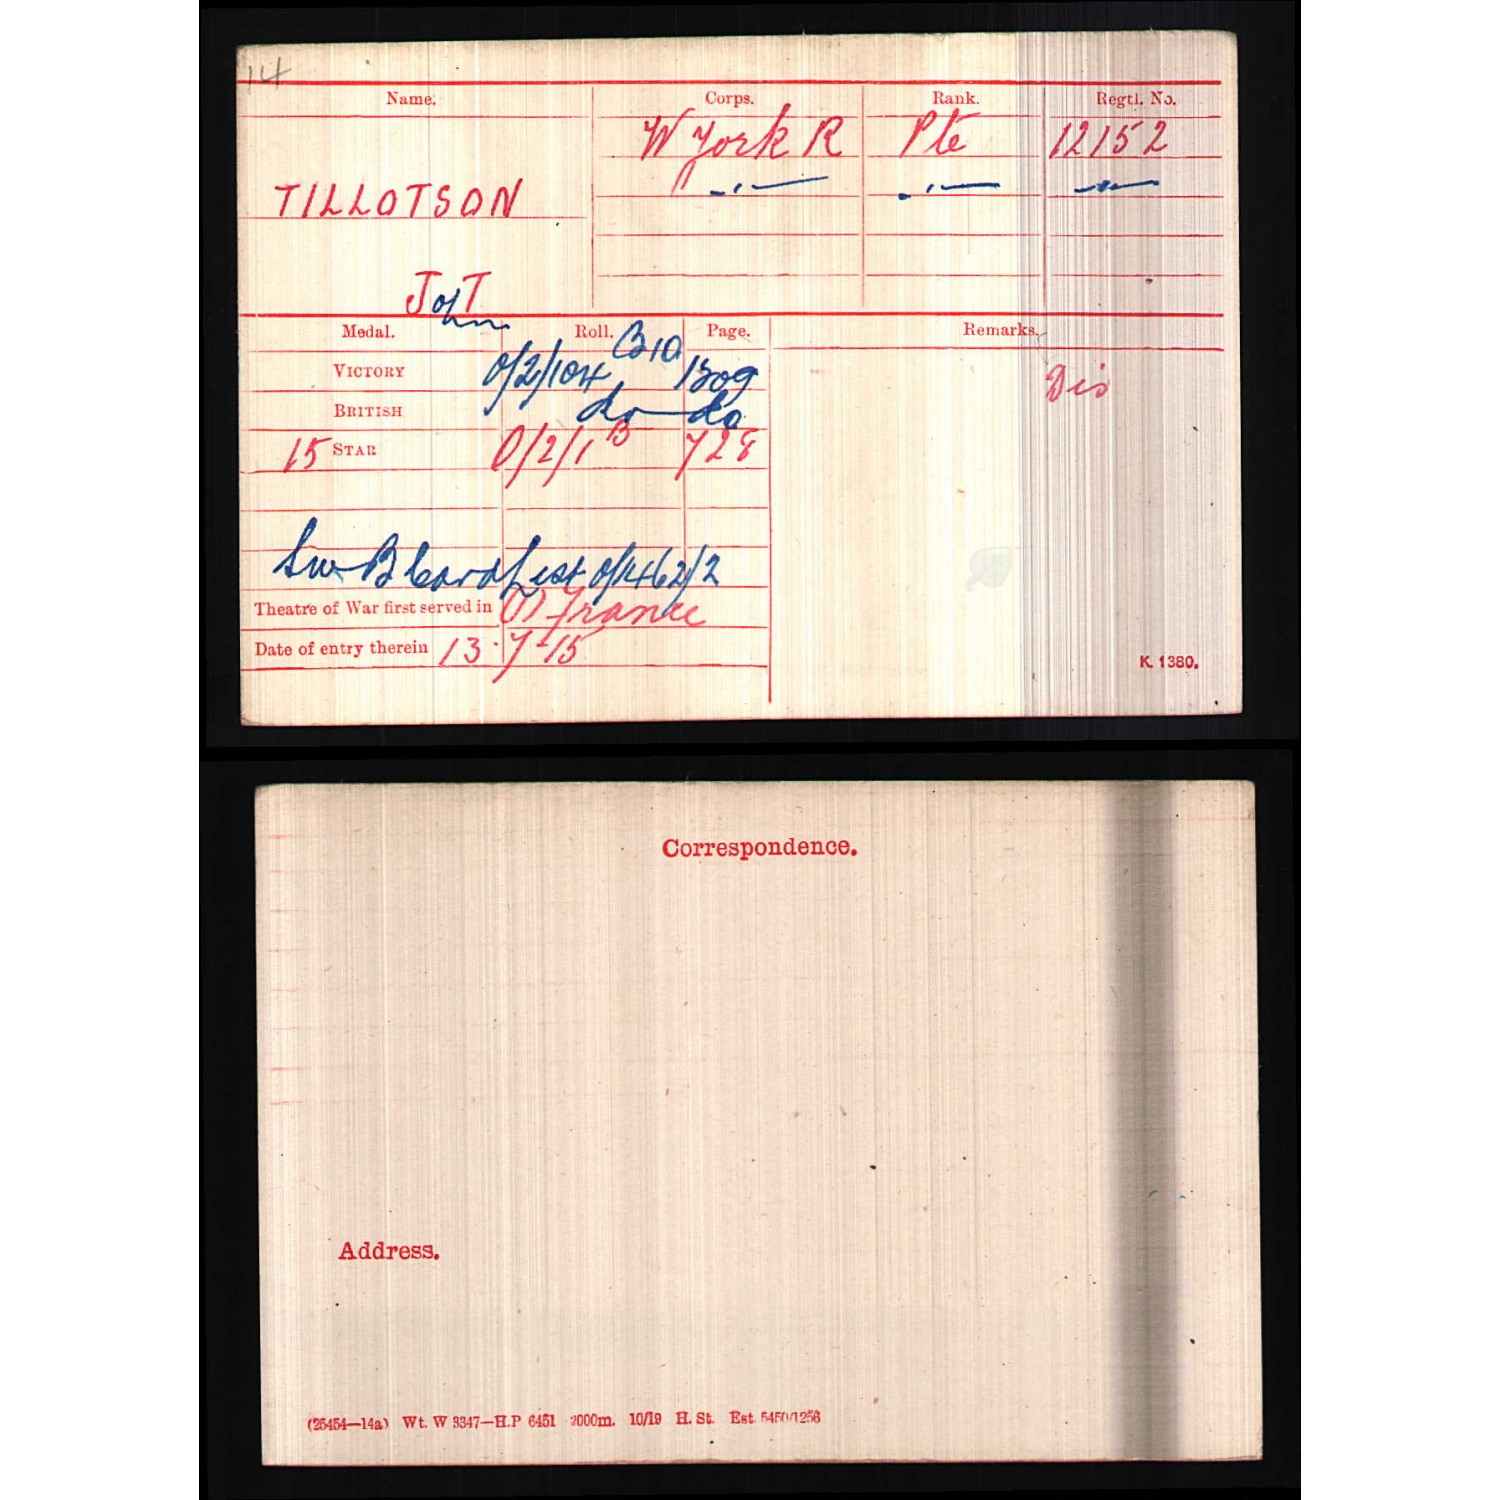 14
Name. Corps. Rank. Regtl. No.
W York R Pte 12152
TILLOTSON
J T
John
Medal. Roll. Page. Remarks.
VICTORY O/2/104 B10 1309 Dis
BRITISH do do
15 STAR O/2/1 B 728
List 0/1462/2
Theatre of War first served in (1) France
Date of entry therein 13-7-15
K. 1380.
Correspondence.
Address.
(25454—14a) Wt. W 3347—H.P 6451 2000m. 10/19 H. St. Est.